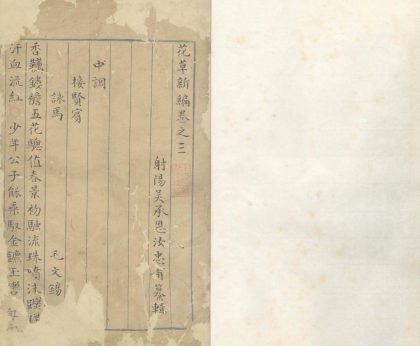 花草新編卷之三
射陽吳承恩汝忠甫纂輯
中調
接賢賓
詠馬 毛文錫
香韉鏤襜五花驄值春景初融流珠噴沫躞
汗血流紅 少年公子能乘馭金鑣玉轡